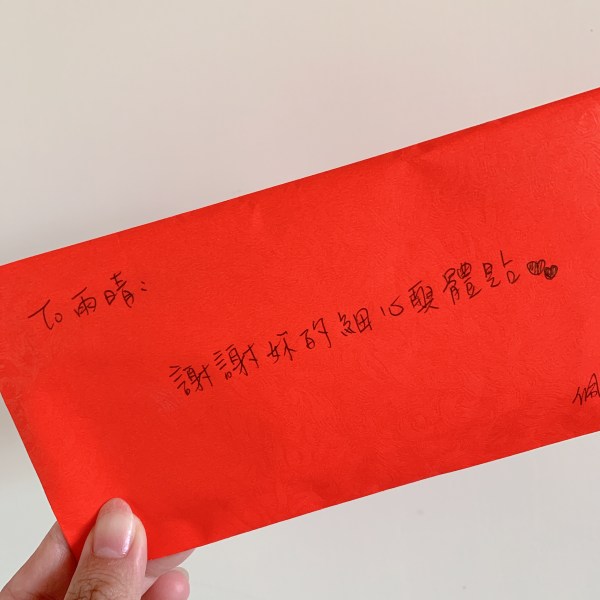 To 雨晴:
謝謝妳的細心與體貼
佩